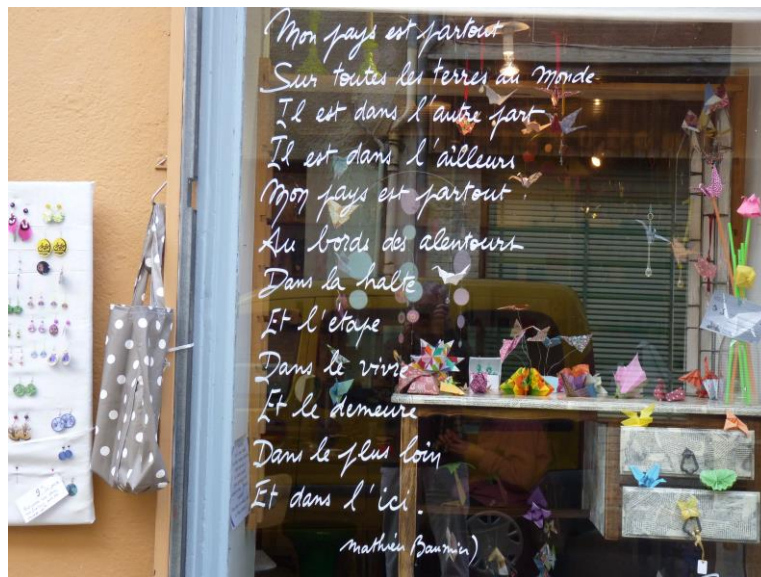 Mon pays est partout
Sur toutes les terres au Monde
Il est dans l'autre part
Il est dans l'ailleurs
Mon pays est partout
Au bords des alentours
Dans la halte
Et l'étape
Dans le vivre
Et le demeure
Dans le plus loin
Et dans l'ici.